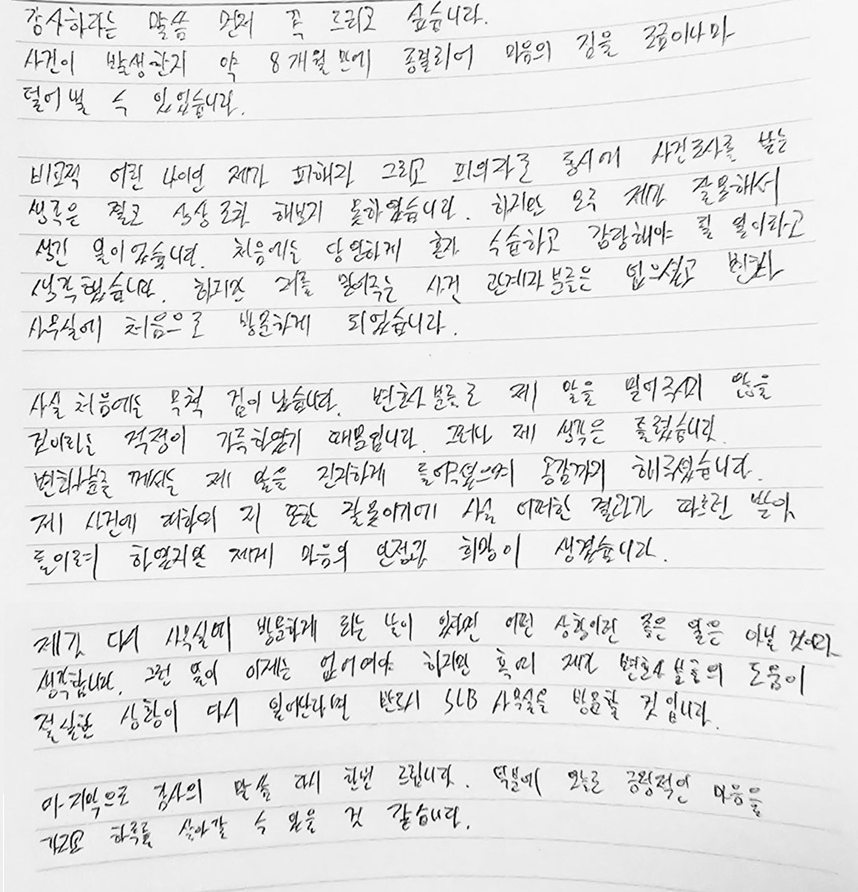 감사하다는 말씀 먼저 꼭 드리고 싶습니다.
사건이 발생한지 약 8개월만에 종결되어 마음의 짐을 조금이나마
덜어낼 수 있었습니다.
비교적 어린 나이인 제가 피해자 그리고 피의자로 동시에 사건조사를 받는
생각은 결코 상상조차 해보지 못하였습니다. 하지만 모두 제가 잘못해서
생긴 일이었습니다. 처음에는 당연하게 혼자 수습하고 감당해야 될 일이라고
생각했습니다. 하지만 저를 믿어주는 사건 관계자분들은 없으셨고 변호사
사무실에 처음으로 방문하게 되었습니다.
사실 처음에는 무척 겁이 났습니다. 변호사분들도 제 말을 믿어주시지 않을
것이라는 걱정이 가득하였기 때문입니다. 그러나 제 생각은 틀렸습니다.
변호사분들께서는 제 말을 진지하게 들어주셨으며 공감까지 해주셨습니다.
제 사건에 대하여 저 또한 잘못이기에 사실 어떠한 결과가 따르던 받아
들이려 하였지만 제게 마음의 안정과 희망이 생겼습니다.
제가 다시 사무실에 방문하게 되는 날이 있다면 어떤 상황이던 좋은 일은 아닐 것이라
생각합니다. 그런 일이 이제는 없어야 하지만 혹여 제가 변호사분들의 도움이
절실한 상황이 다시 일어난다면 반드시 SLB 사무실을 방문할 것입니다.
마지막으로 감사의 말씀 다시 한번 드립니다. 덕분에 오늘도 긍정적인 마음을
가지고 하루를 살아갈 수 있을 것 같습니다.